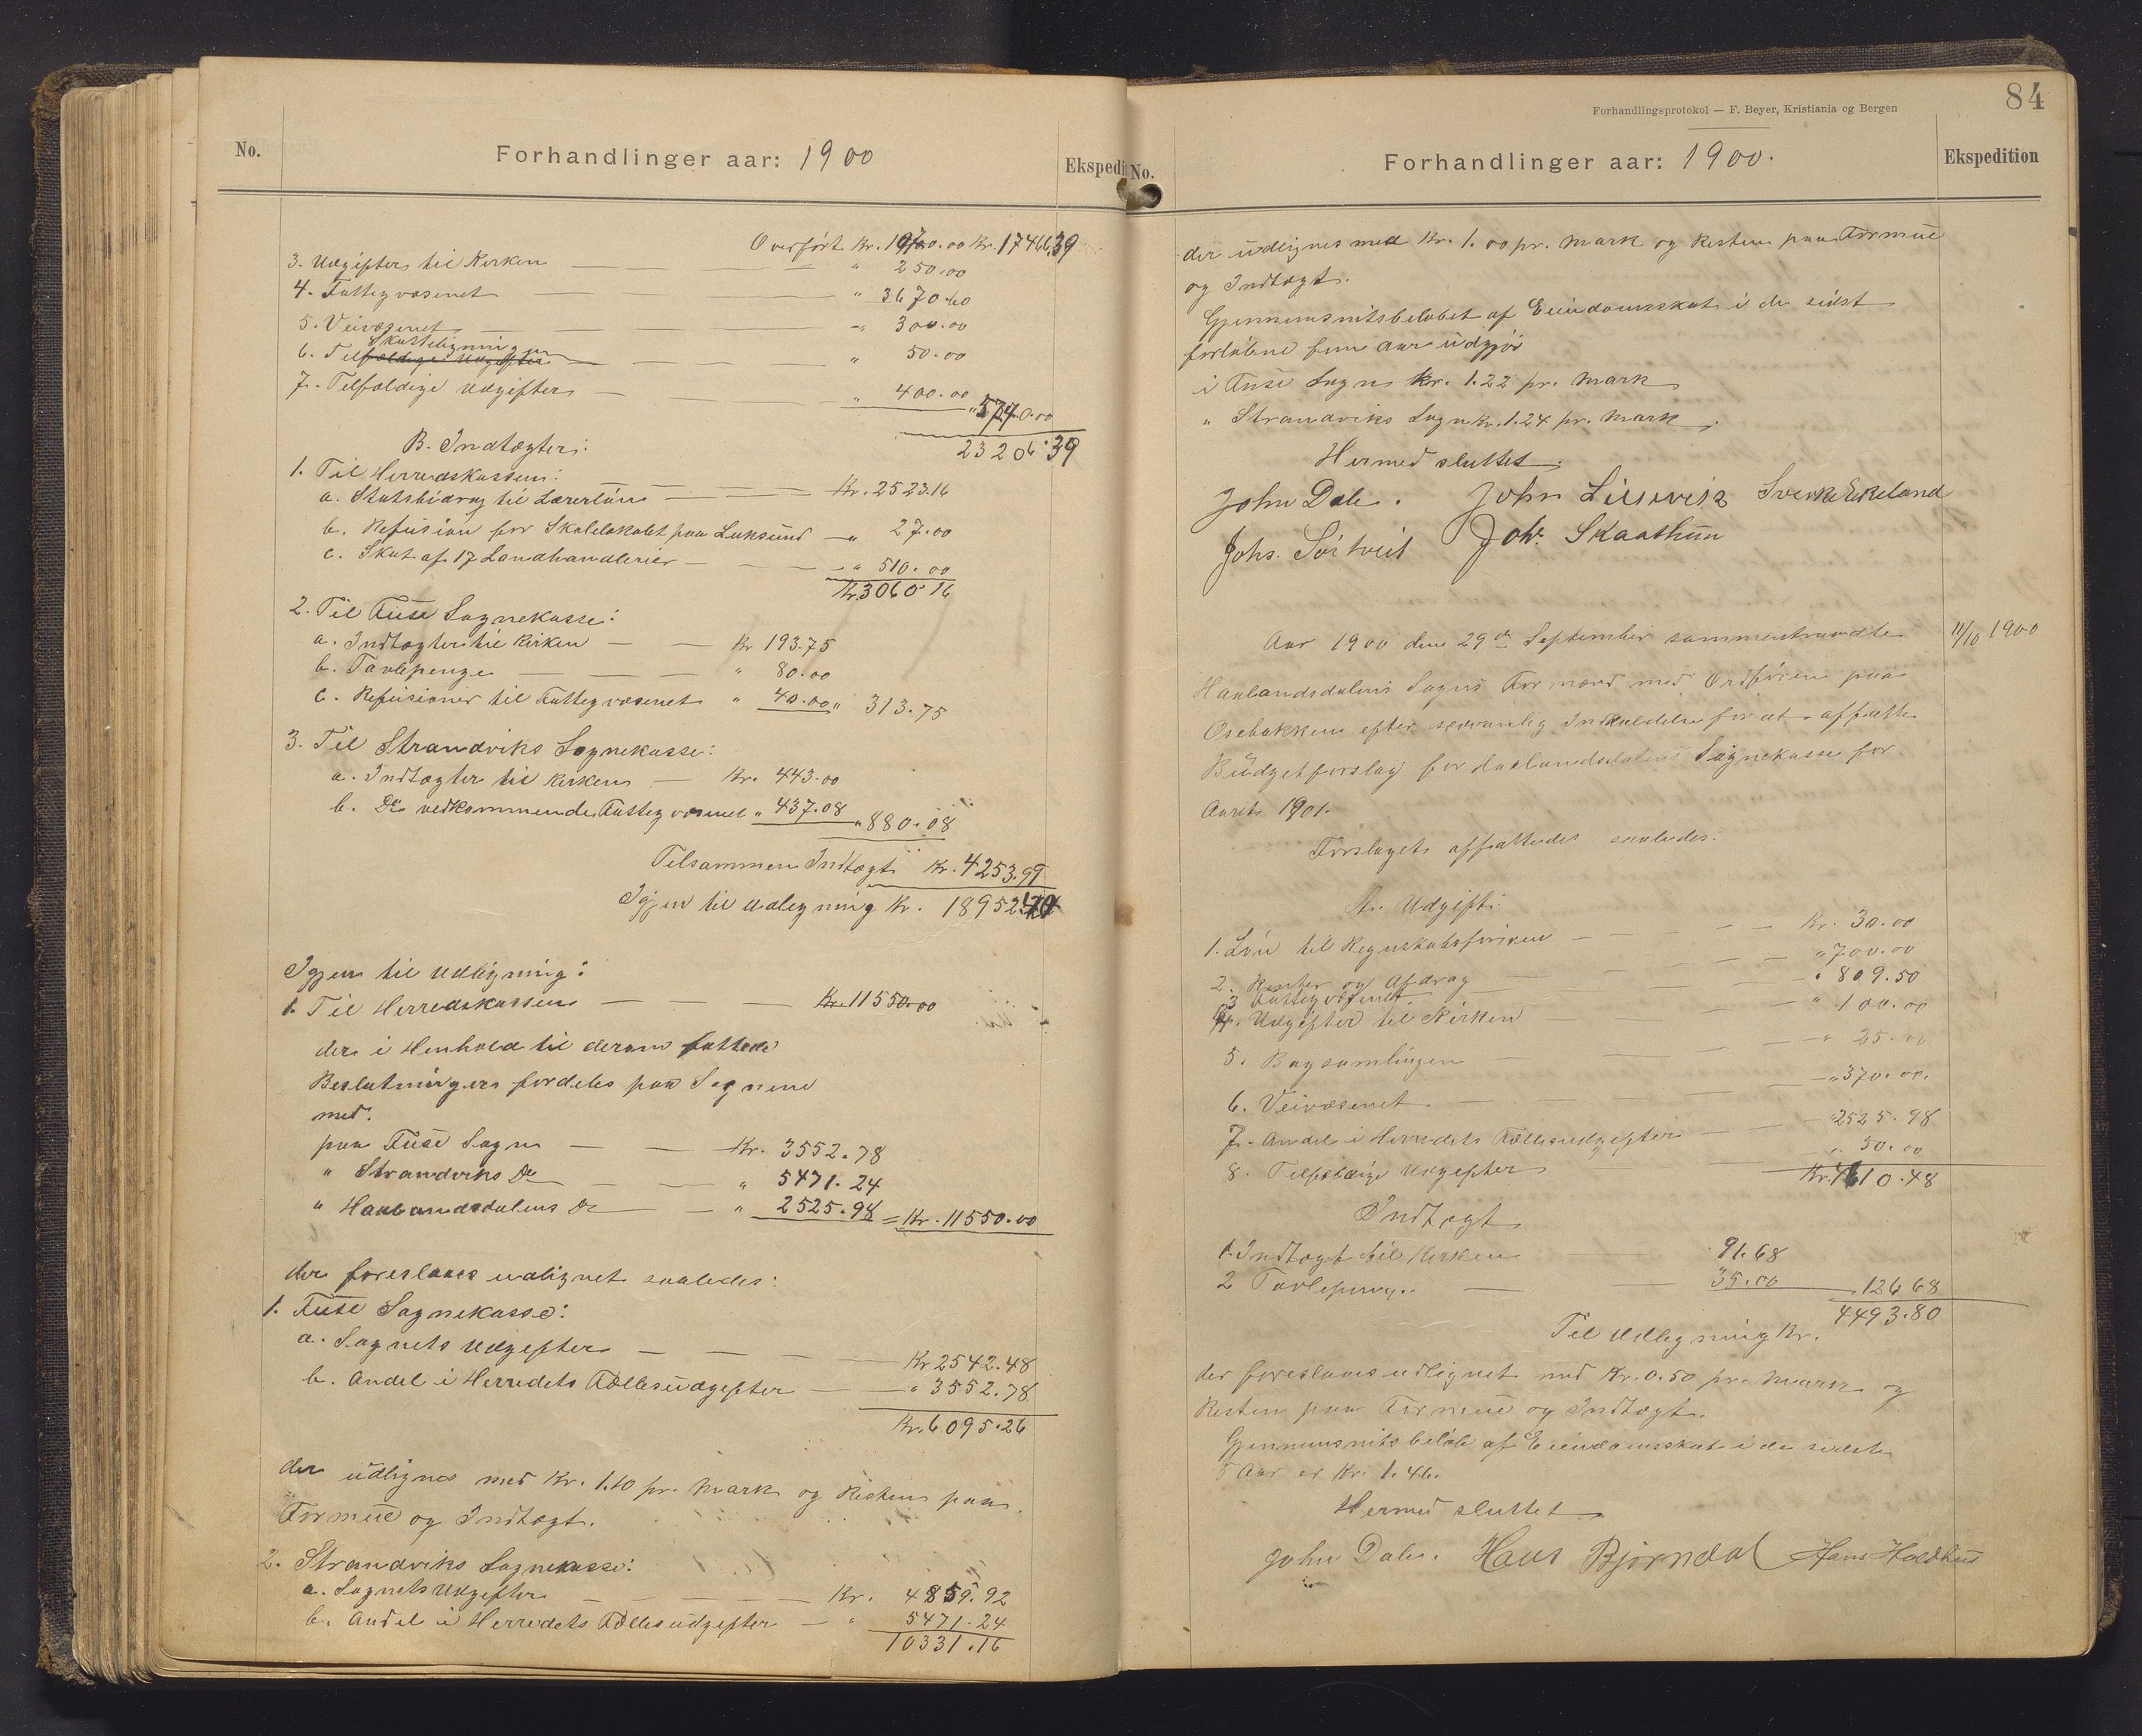 No.
Forhandlinger aar: 1900
Ekspedi
Overført Kr. 1070.00 Kr. 17466.39
3. Udgifter til Kirken " 250.00
4. Fattigvæsenet " 3670.60
5. Veivæsenet " 300.00
Skatteligningen
6. Telfældige Udgifter " 50.00
7. Telfældige Udgifter " 400.00
" 5740.00
23206.39
B. Indtægter:
1. Til Herredskassen:
a. Statsbidrag til Lærerløn Kr. 2523.16
b. Refusion for Skolelokalet paa Luksund " 27.00
c. Skat af 17 Landhandlerier " 510.00
Kr. 3060.16
2. Til Fuse Sognekasse:
a. Indtægter til Kirken Kr 193.75
b. Tavlepenge " 80.00
c. Refusioner til Fattigvæsenet " 40.00 " 313.75
3. Til Strandviks Sognekasse:
a. Indtægter til Kirken Kr. 443.00
b. Do vedkommende Fattigvæsenet " 437.08 " 880.08
Telsammen Indtægt Kr. 4253.99
Igjen til Udligning Kr. 18952.40
Igjen til Udligning:
1. Til Herredskassen Kr. 11550.00
der i Henhold til derom fattede
Beslutninger fordeles paa Sognene
med:
paa Fuse Sogn Kr. 3552.78
" Strandviks Do " 5471.24
" Haalandsdalens Do " 2525.98 = Kr. 11550.00
der foreslaaes udlignet saaledes:
1. Fuse Sognekasse:
a. Sognets Udgifter Kr 2542.48
b. Andel i Herredets Fællesudgifter " 3552.78
Kr. 6095.26
der udlignes med Kr. 1.10 pr. Mark og Resten paa
Formue og Indtægt.
2. Strandviks Sognekasse:
a. Sognets Udgifter Kr. 4859.92
b. Andel i Herredets Fællesudgifter " 5471.24
10331.16
Forhandlingsprotokol — F. Beyer, Kristiania og Bergen
84
No.
Forhandlinger aar: 1900.
Ekspedition
der udlignes med Kr. 1.00 pr. Mark og Resten paa Formue
og Indtægt.
Gjennemsnitsbeløbet af Eiendomsskat i de sidst
forløbne fem Aar udgjør
i Fuse Sogn Kr. 1.22 pr. Mark
" Strandviks Sogn Kr. 1.24 pr. Mark.
Hermed sluttet.
John Dale. John Lillevik Sverke Ekeland
Johs. Sörtveit Joh. Skaathun
Aar 1900 den 29de September sammentraadte 11/10 1900
Haalandsdalens Sogns Formænd med Ordføreren paa
Osebakken efter sædvanlig Indkaldelse for at affatte
Budgetforslag for Haalandsdalens Sognekasse for
Aaret 1901.
Forslaget affattedes saaledes:
A. Udgift:
1. Løn til Regnskabsføreren Kr. 30.00
2. Renter og Afdrag " 700.00
3 Fattigvæsenet " 809.50
4. Udgifter til Kirken " 100.00
5. Bogsamlingen " 25.00
6. Veivæsenet " 370.00.
7. Andel i Herredets Fællesudgifter " 2525.98
8. Telfældige Udgifter " 50.00
Kr. 4610.48
Indtægt
1. Indtægt til Kirken 91.68
2 Tavlepenge 35.00 126 68
Til Udligning Kr. 4493.80
der foreslaaes udlignet med Kr. 0.50 pr. Mark og
Resten paa Formue og Indtægt.
Gjennemsnitsbeløb af Eiendomsskat i de sidste
5 Aar er Kr. 1.46.
Hermed sluttet
John Dale. Hans Bjørndal Hans Holdhus